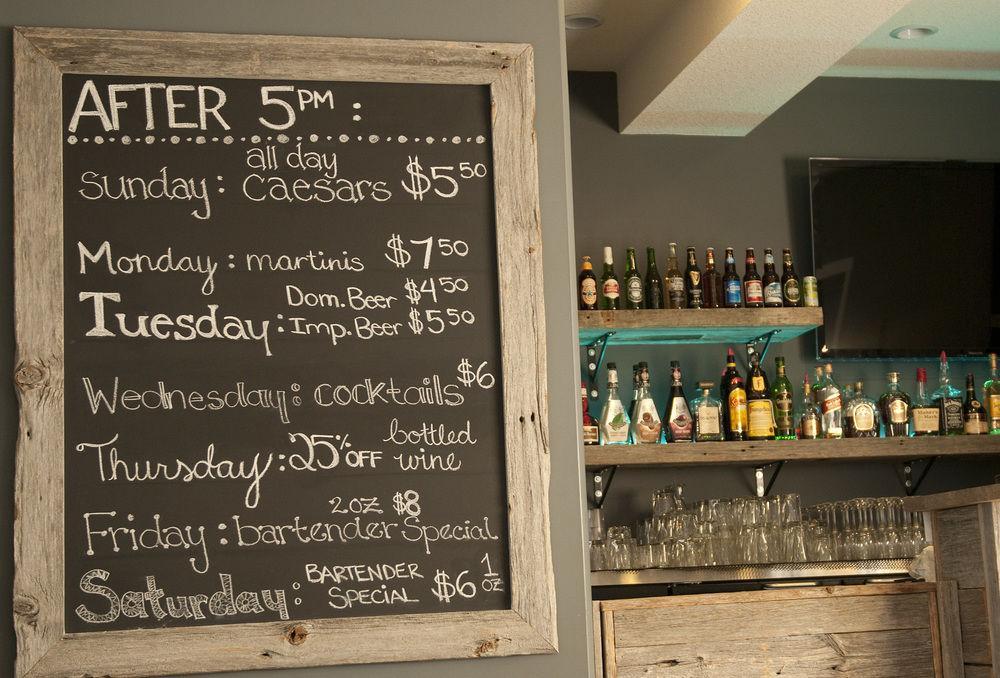 AFTER 5PM :
Sunday : all day caesars $5.50
Monday : martinis $7.50
Tuesday : Dom. Beer $4.50
Imp. Beer $5.50
Wednesday : cocktails $6
Thursday : 25% OFF bottled wine
Friday : 2oz $8 bartender Special
Saturday : BARTENDER SPECIAL $6 1 oz